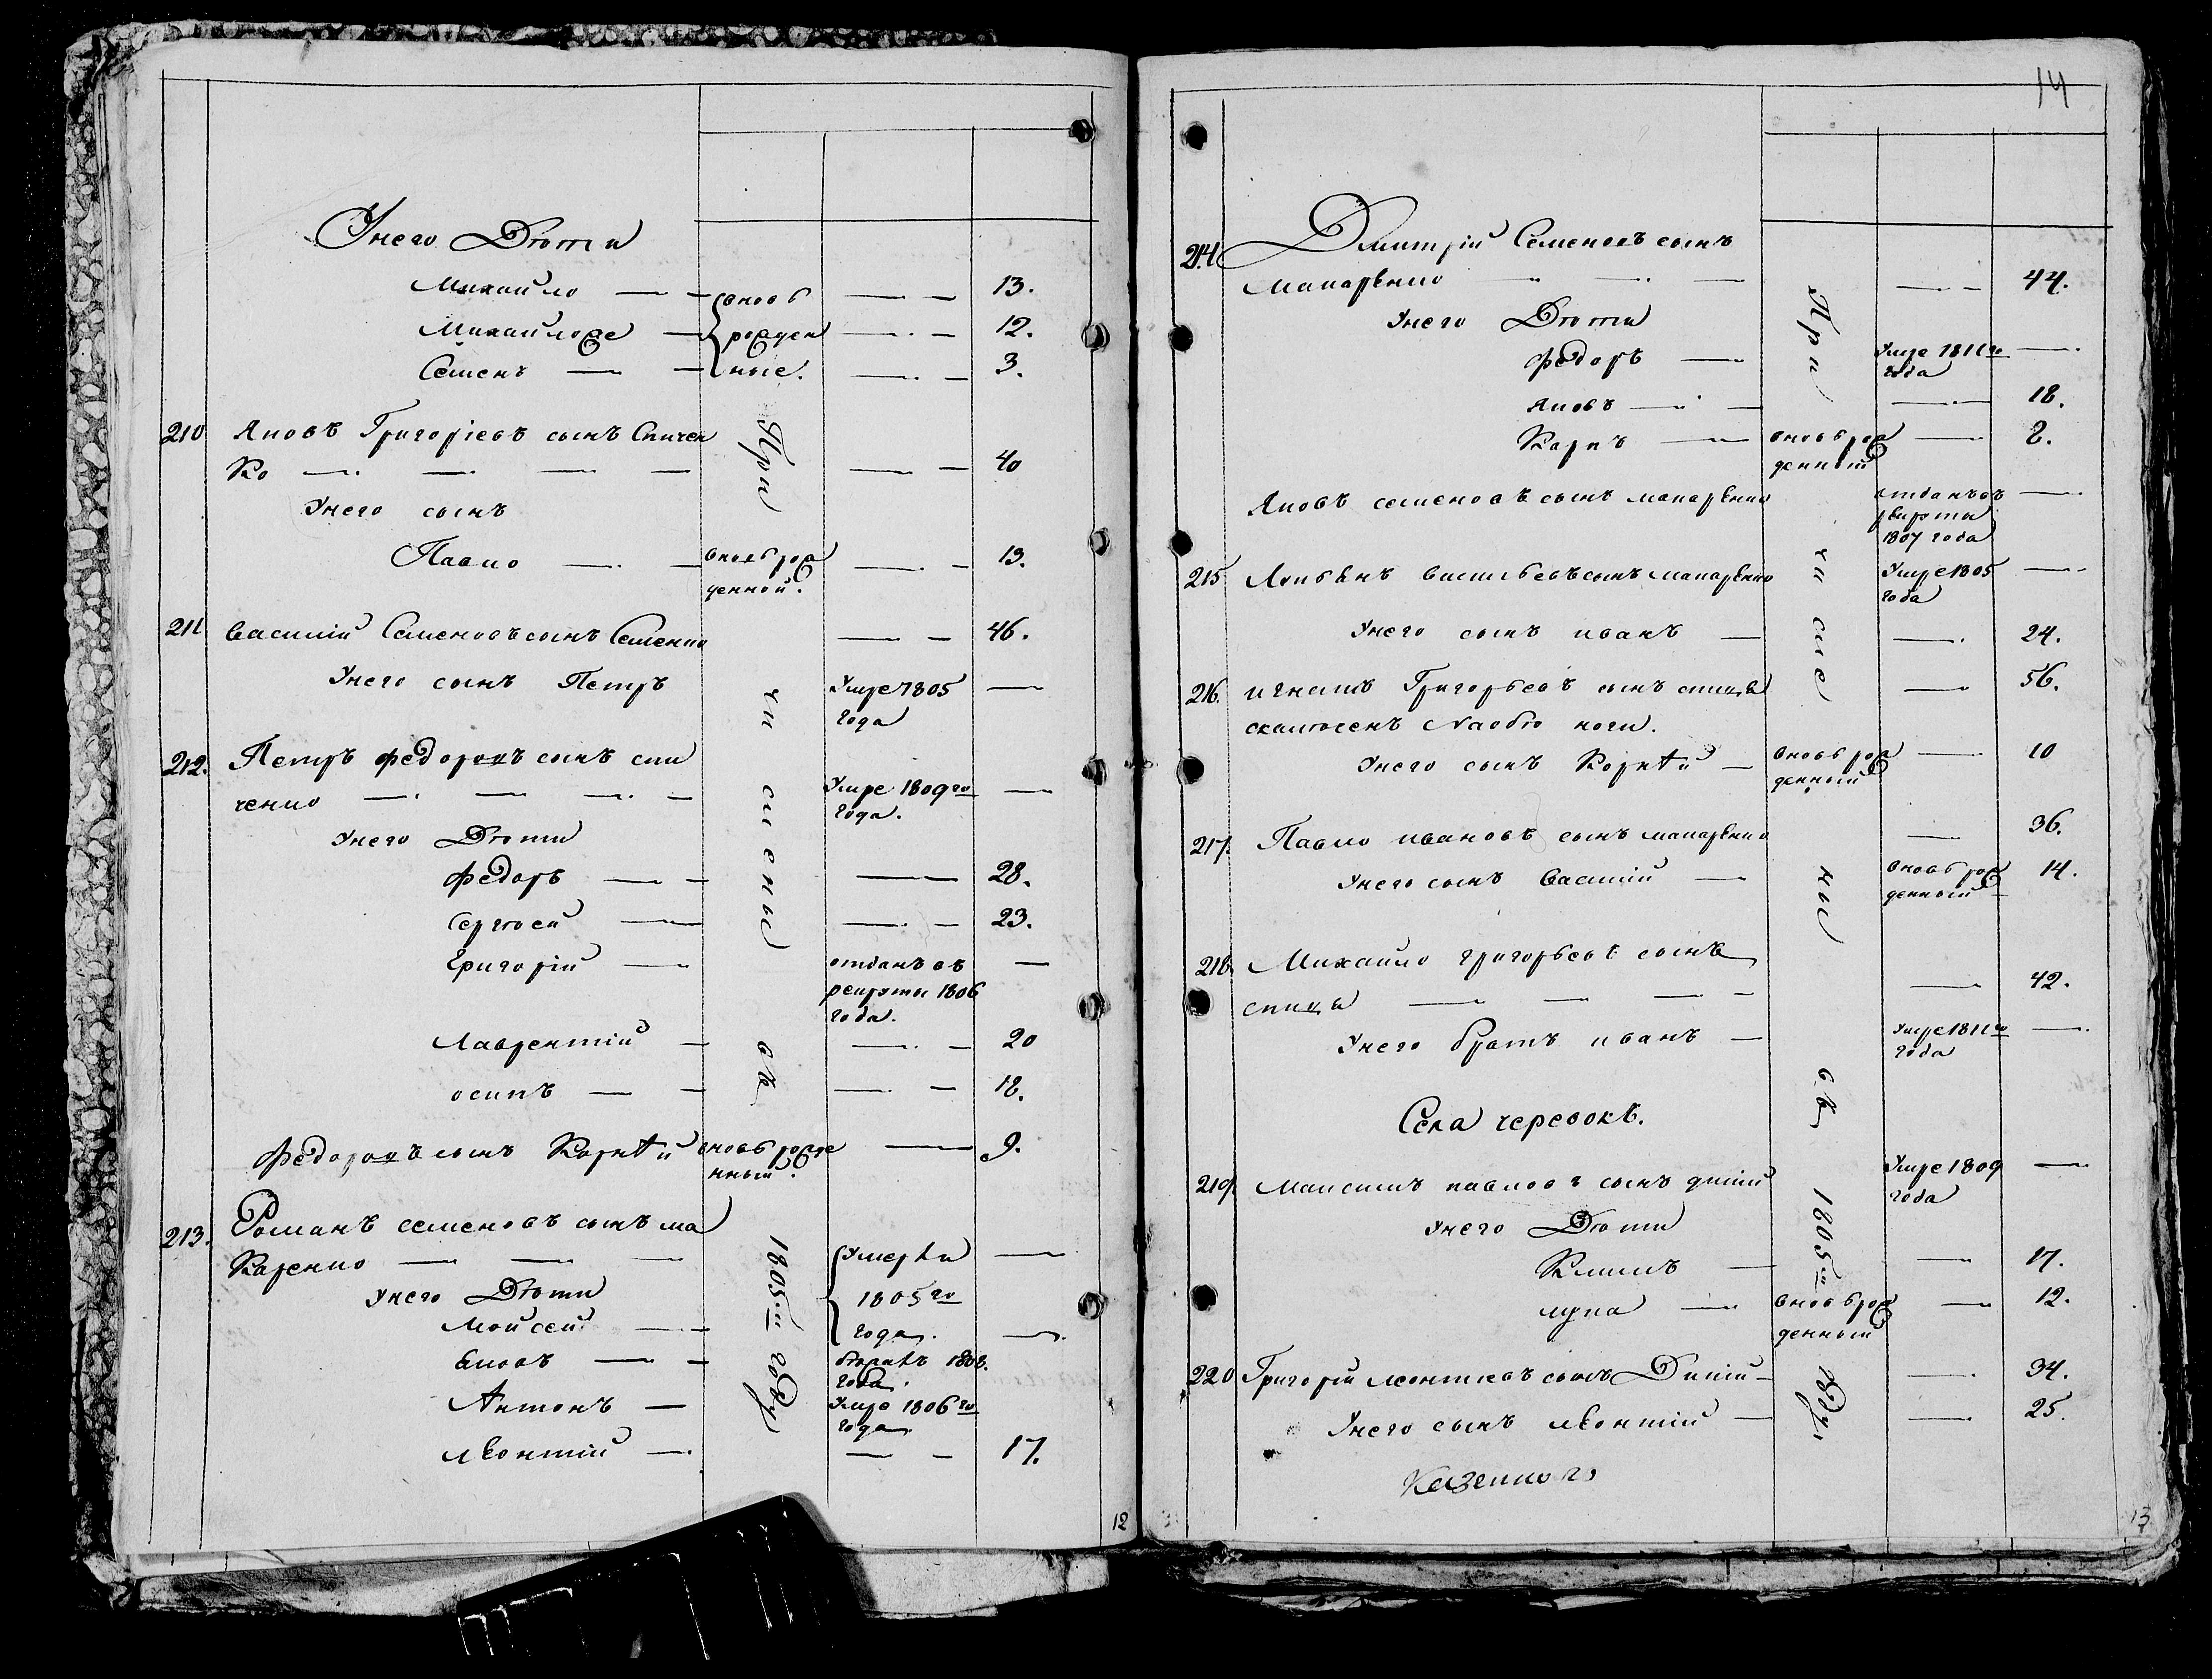 У него Дѣти
Михайло — вновь 13.
Михайло же — рожден 12.
Семенъ — ные. 3.
210 Яковъ Григорьевъ сынъ Спичен
ко — 40
У него сынъ
Павло — вновь рож 13.
денной.
211 Василій Семеновъ сынъ Семенко — 46.
У него сынъ Петръ Умре 1805 —
года
212. Петръ Федоровъ сынъ спи
ченко — Умре 1809го —
года.
У него Дѣти
Федоръ — 28.
Сергѣей — 23.
Григорій — отданъ въ —
рекруты 1806
года.
Лаврентій — 20
осипъ — 18.
Федоровъ сынъ Корнѣй вновь рожде — 9.
нный.
213. Романъ семеновъ сынъ ма
каренко — Умерли —
У него Дѣти 1805го
Мойсей — года. —
Яковъ — 1808.
года.
Антонъ — Умре 1806го
года
леонтій — 17.
При
чи
слены
въ
1805м году
12
14
214 Дмитрій Семеновъ сынъ
макаренко — 44.
У него Дѣти
Федоръ — Умре 1811го —
года
Яковъ — 18.
Карпъ — вновь рож — 8.
денный
Яковъ семеновъ сынъ макаренко отданъ въ —
рекруты
1807 года
215 васильевъ сынъ макаренко Умре 1805 —
года
У него сынъ иванъ — 24.
216. игнатъ Григорьевъ сынъ спица — 56.
скалѣченъ на обѣ ноги.
У него сынъ Корнѣй — вновь рож — 10
денный
217. Павло ивановъ сынъ макаренко — 36.
У него сынъ Василій — вновь рож 14.
денный
218. Михайло григорьевъ сынъ
спица — 42.
У него братъ иванъ — Умре 1811го —
года
Села черевокъ.
219. Максимъ павловъ сынъ Умре 1809 —
года
У него Дѣти
Климъ — 17.
лука — вновь рож — 12.
денный
220 Григорій леонтіевъ сынъ — 34.
У него сынъ леонтій — 25.
Казенного
При
чи
сле
ны
въ
1805м
году.
13